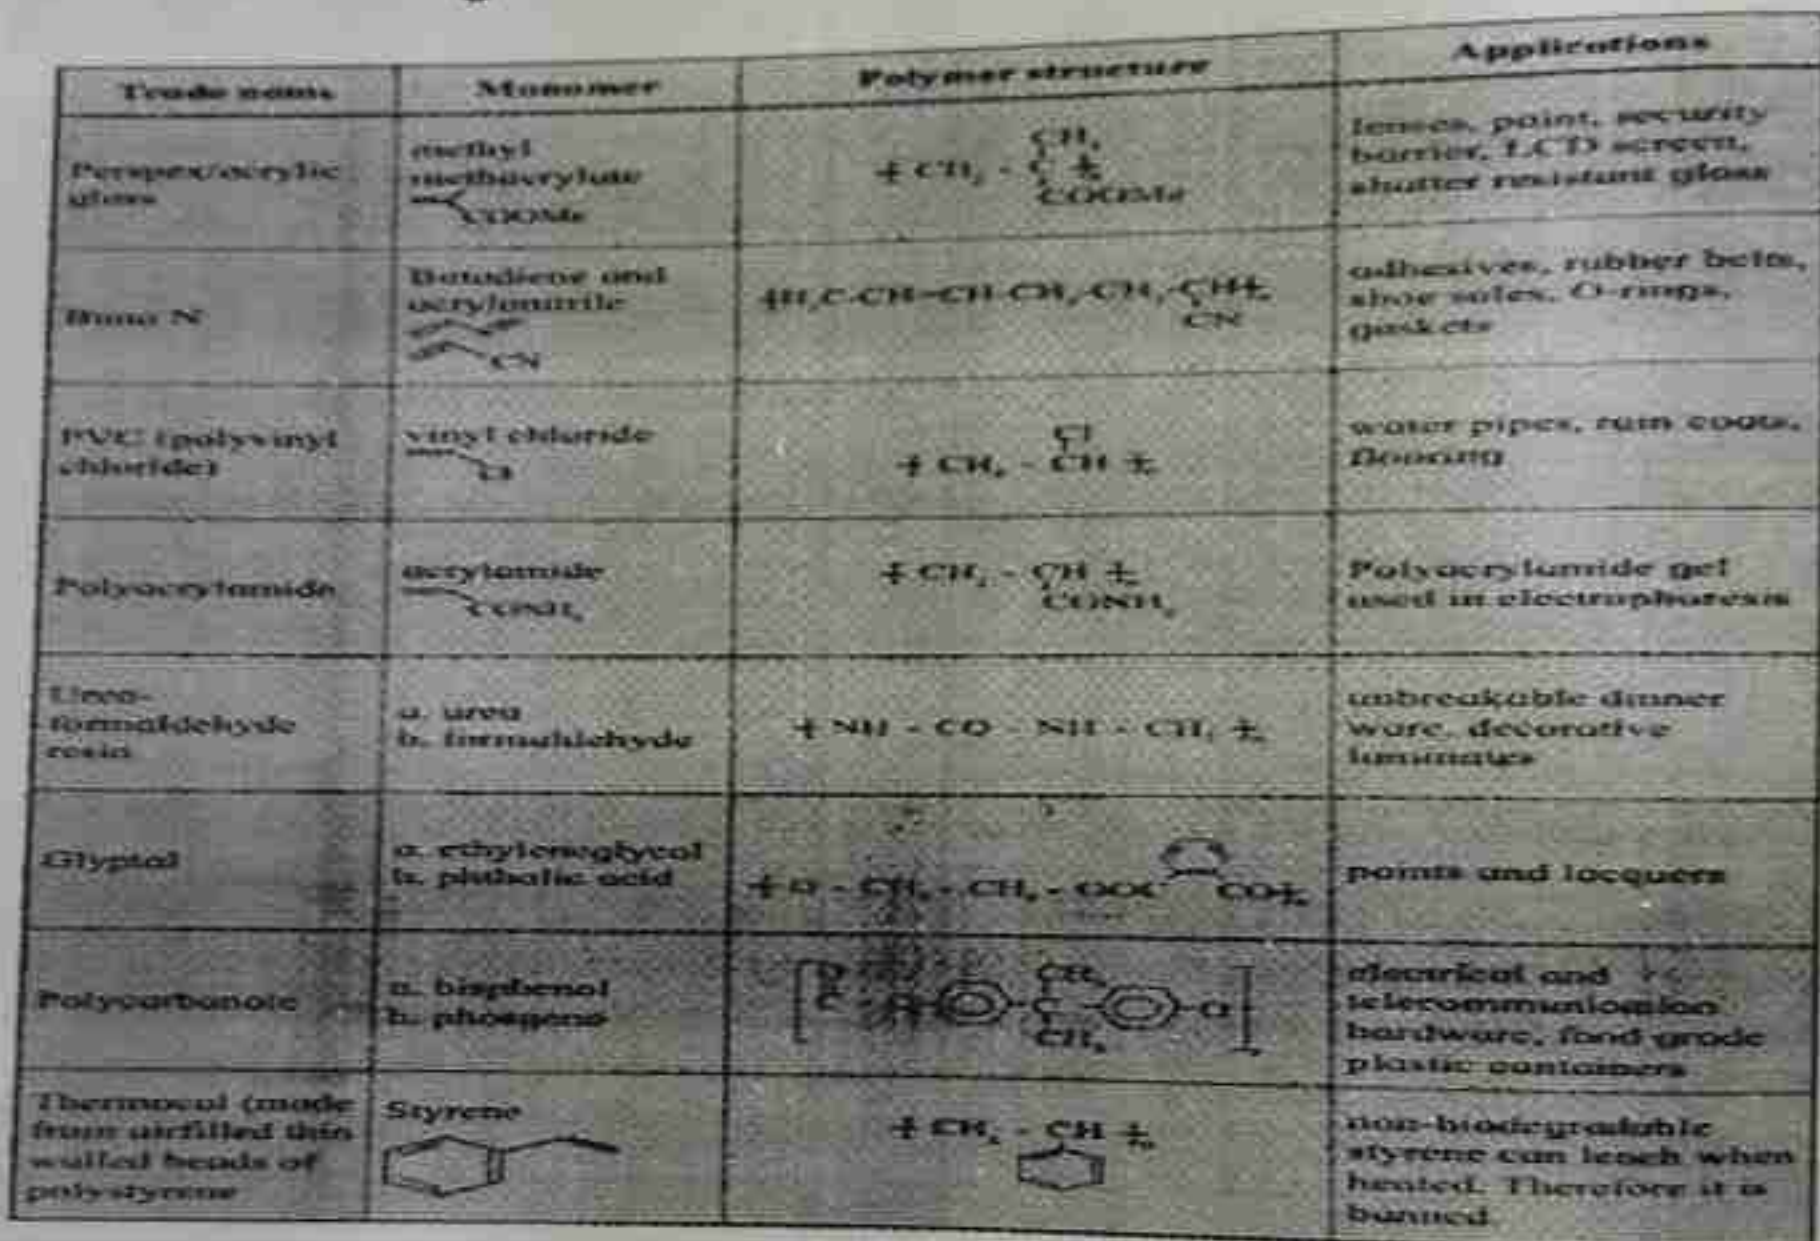 Trade name Monomer Polymer structure Applications
Perspex/acrylic
glass
methyl
methacrylate
COOMe
CH₃
CH₂ - C
COOMe
lenses, paint, security
barrier, LCD screen,
shatter resistant glass
Buna N
Butadiene and
acrylonitrile
CN
H₂C-CH=CH-CH₂-CH₂-CH
CN
adhesives, rubber belts,
shoe soles, O-rings,
gaskets
PVC (polyvinyl
chloride)
vinyl chloride
Cl
Cl
CH₂ - CH
water pipes, rain coats,
flooring
Polyacrylamide
acrylamide
CONH₂
CH₂ - CH
CONH₂
Polyacrylamide gel
used in electrophoresis
Urea-
formaldehyde
resin
a. urea
b. formaldehyde
NH - CO - NH - CH₂
unbreakable dinner
ware, decorative
laminates
Glyptal
a. ethyleneglycol
b. phthalic acid
O - CH₂ - CH₂ - OOC CO
paints and lacquers
Polycarbonate
a. bisphenol
b. phosgene
O CH₃
C - O - C - O
CH₃
electrical and
telecommunication
hardware, food grade
plastic containers
Thermocol (made
from airfilled thin
walled beads of
polystyrene
Styrene
CH₂ - CH
non-biodegradable
styrene can leach when
heated. Therefore it is
banned.